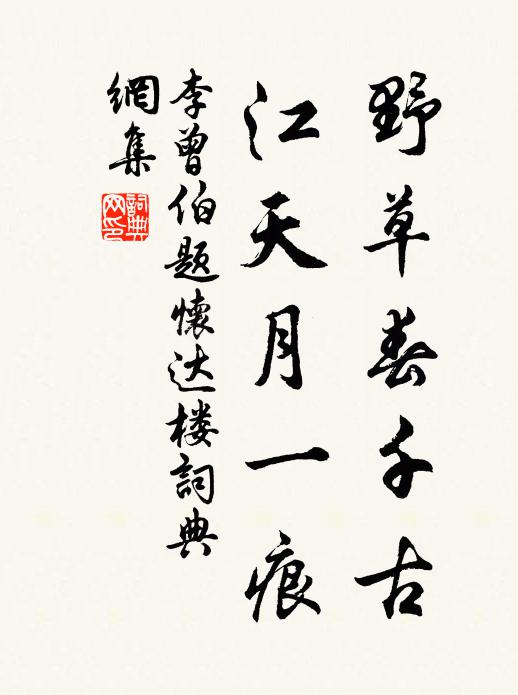 野草春千古
江天月一痕
李曾伯题懷达楼詞典
網集
詞典网印